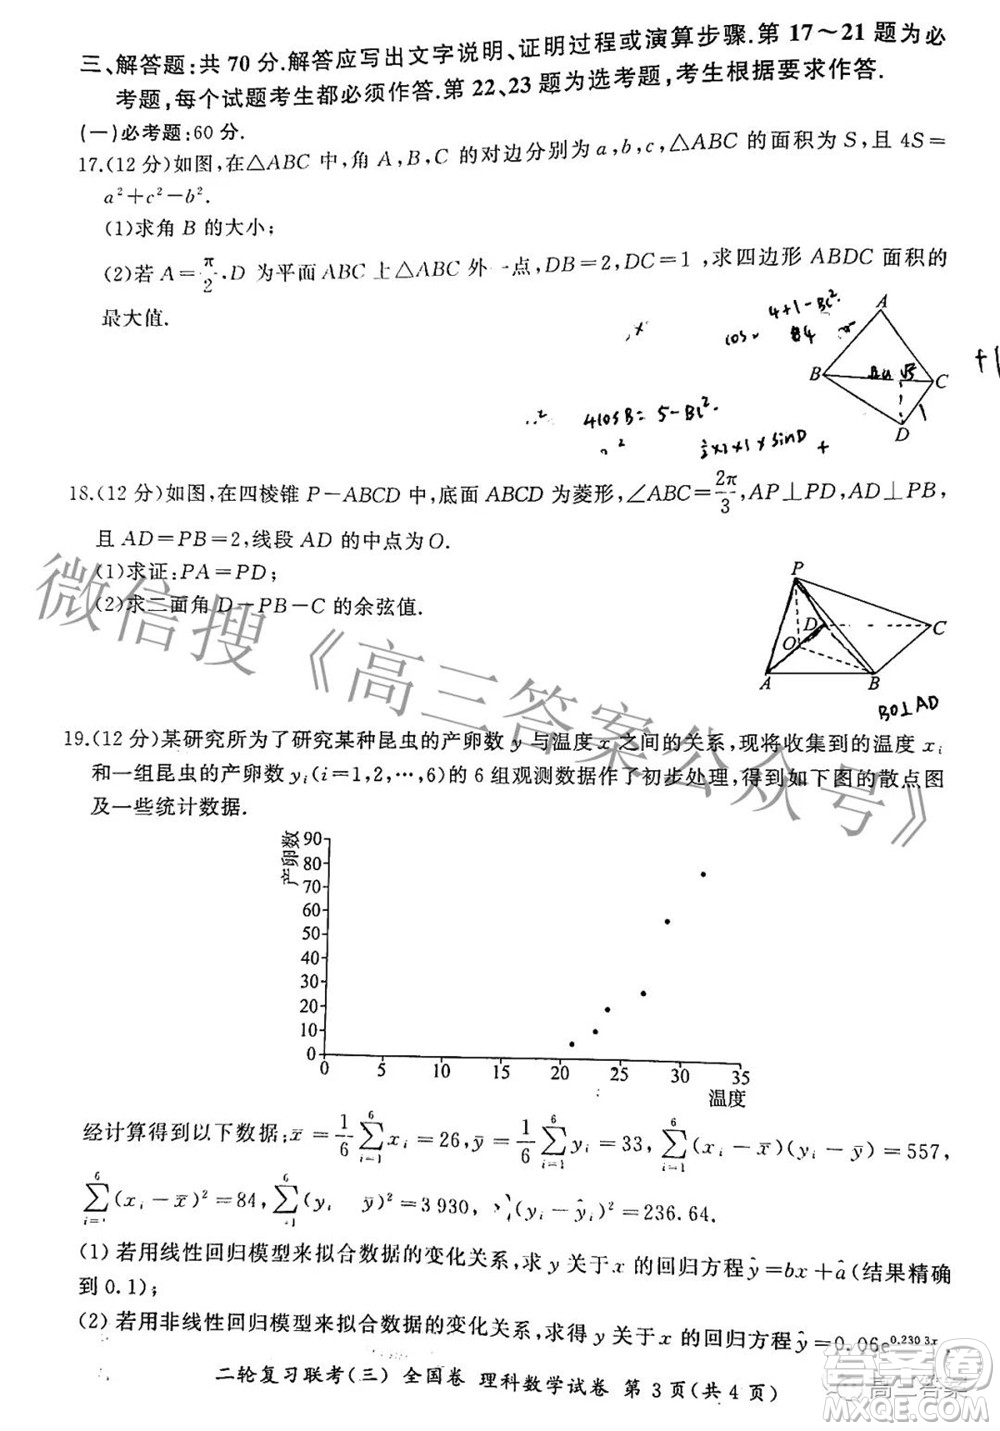 三、解答题:共 70 分.解答应写出文字说明、证明过程或演算步骤.第 17～21 题为必
考题,每个试题考生都必须作答.第 22、23 题为选考题,考生根据要求作答.
(一)必考题:60 分.
17.(12 分)如图,在△ABC 中,角 A,B,C 的对边分别为 a,b,c,△ABC 的面积为 S,且 4S=
a²+c²-b².
(1)求角 B 的大小;
(2)若 A=π/2,D 为平面 ABC 上△ABC 外一点,DB=2,DC=1,求四边形 ABDC 面积的
最大值.
4+1-BC²
cos
4cosB=5-BC²
½×2×1×sinD +
√5
1
+1
A
B
C
D
18.(12 分)如图,在四棱锥 P-ABCD 中,底面 ABCD 为菱形,∠ABC=2π/3,AP⊥PD,AD⊥PB,
且 AD=PB=2,线段 AD 的中点为O.
(1)求证:PA=PD;
(2)求二面角 D-PB-C 的余弦值.
P
D
C
O
A
B
BO⊥AD
19.(12 分)某研究所为了研究某种昆虫的产卵数 y 与温度 x 之间的关系,现将收集到的温度 xᵢ
和一组昆虫的产卵数 yᵢ(i=1,2,…,6)的 6 组观测数据作了初步处理,得到如下图的散点图
及一些统计数据.
产卵数
90
80
70
60
50
40
30
20
10
0
0 5 10 15 20 25 30 35
温度
经计算得到以下数据:x̄=1/6 ∑(i=1→6) xᵢ=26,ȳ=1/6 ∑(i=1→6) yᵢ=33,∑(i=1→6)(xᵢ-x̄)(yᵢ-ȳ)=557,
∑(xᵢ-x̄)²=84,∑(yᵢ ȳ)²=3 930, (yᵢ-ŷᵢ)²=236.64.
(1)若用线性回归模型来拟合数据的变化关系,求 y 关于 x 的回归方程 ŷ=bx+â(结果精确
到 0.1);
(2)若用非线性回归模型来拟合数据的变化关系,求得 y 关于 x 的回归方程 ŷ=0.06e^0.230 3x,
二轮复习联考(三) 全国卷 理科数学试卷 第 3 页(共 4 页)
微信搜《高三答案公众号》
高三答案